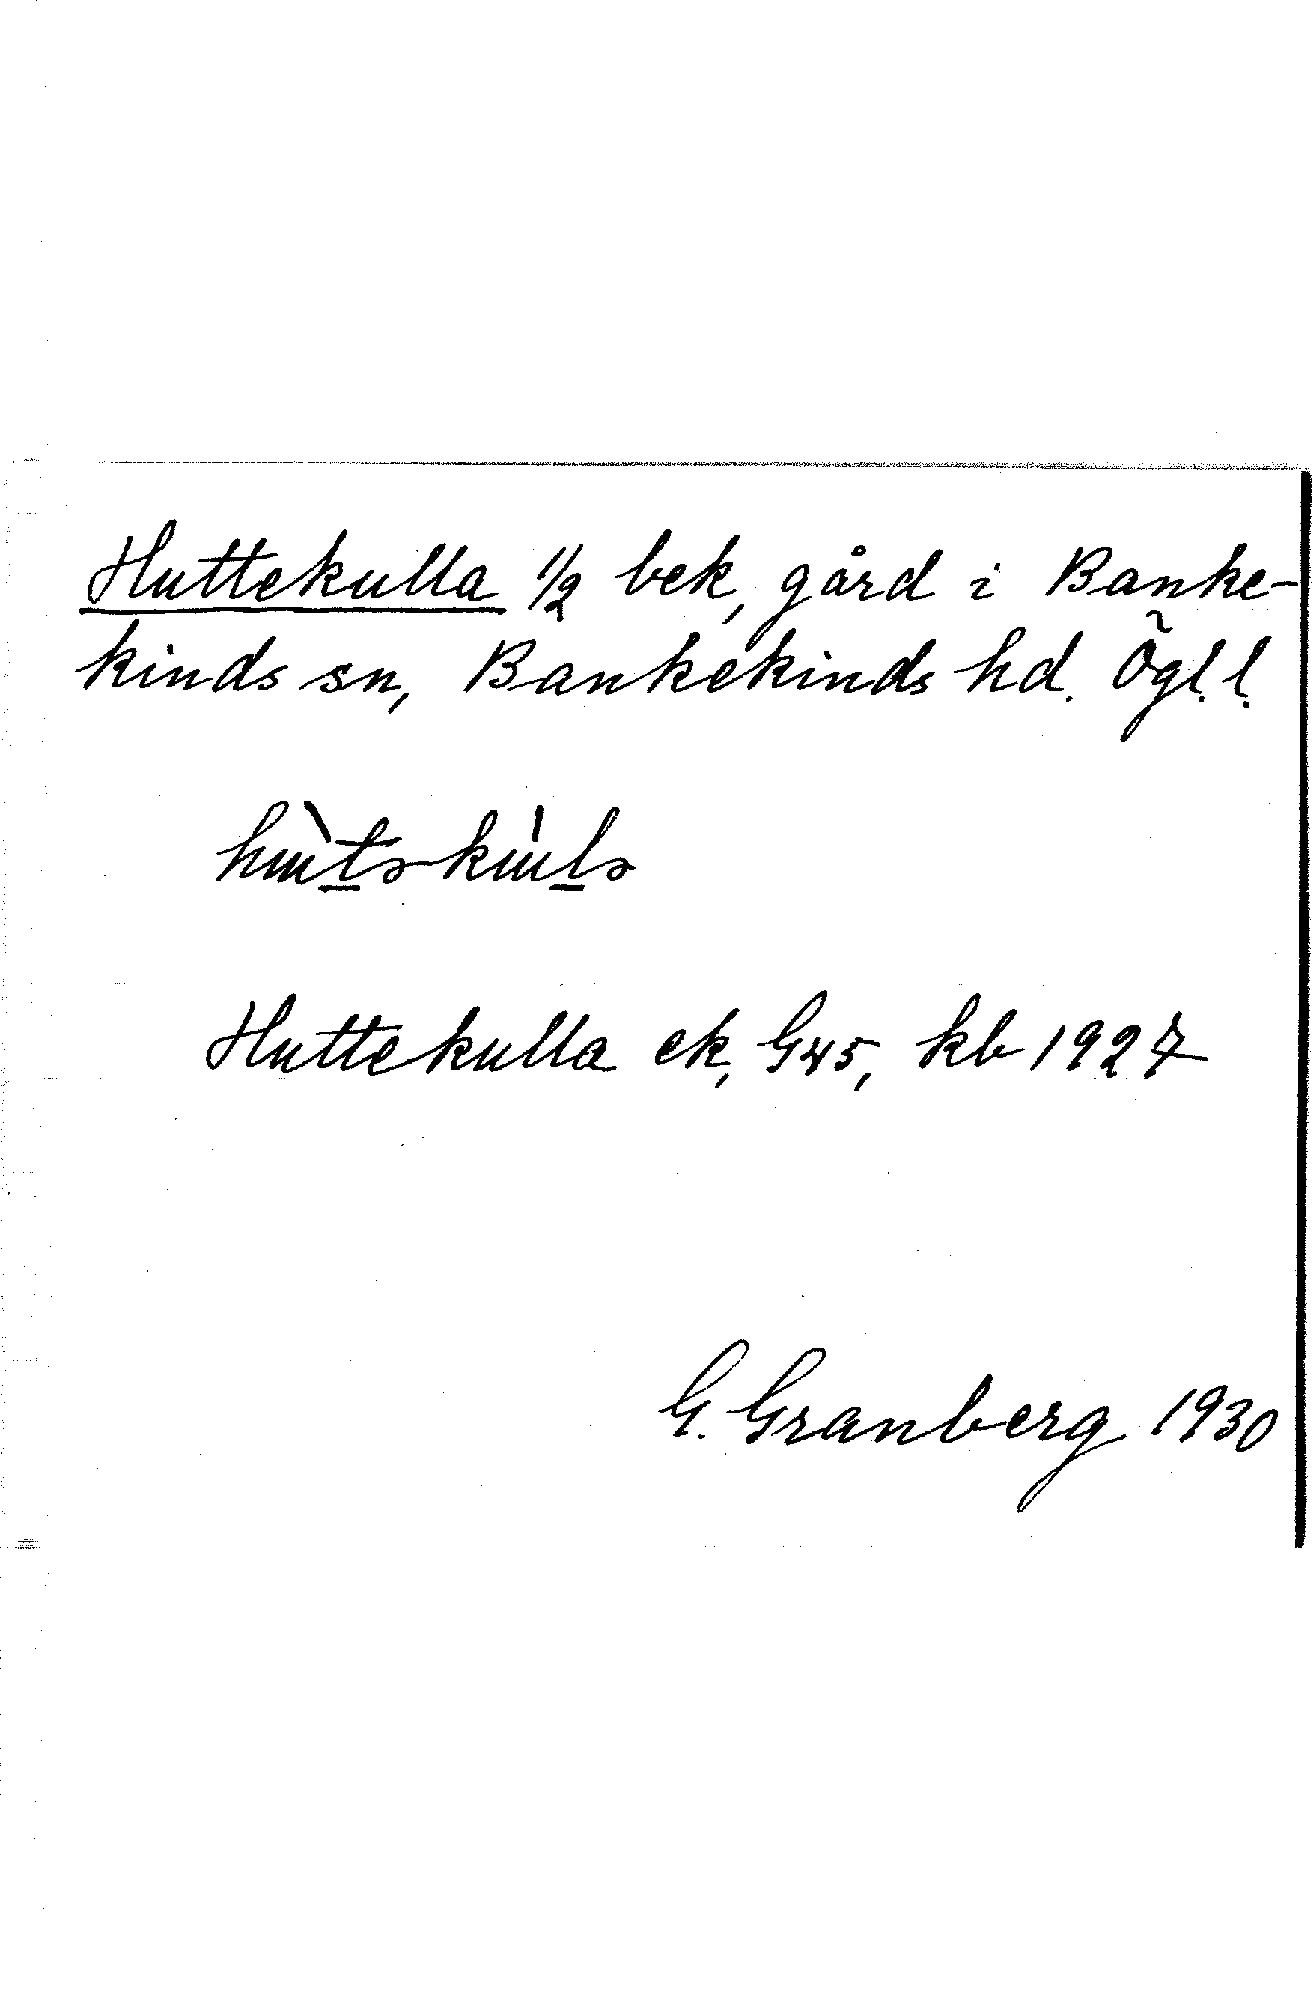 Huttekulla 1/2 bek, gård i Banke-
kinds sn, Bankekinds hd. Ögl. l.
Huttekulla ek, G45, kb 1927
G. Granberg 1930